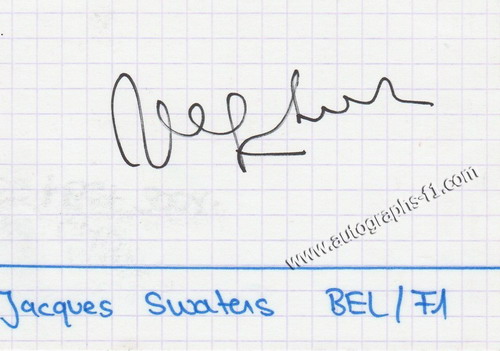 www.autographs-f1.com
Jacques Swaters BEL/F1